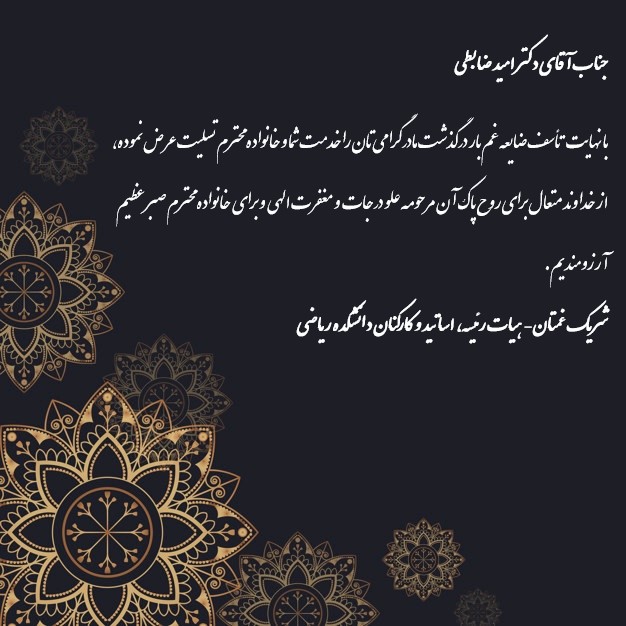 جناب آقای دکتر امید ضابطی
با نهایت تأسف ضایعه غم بار درگذشت مادر گرامی تان را خدمت شما و خانواده محترم تسلیت عرض نموده،
از خداوند متعال برای روح پاک آن مرحومه علو درجات و مغفرت الهی و برای خانواده محترم صبر عظیم
آرزومندیم.
شریک غمتان- هیات رئیسه، اساتید و کارکنان دانشکده ریاضی